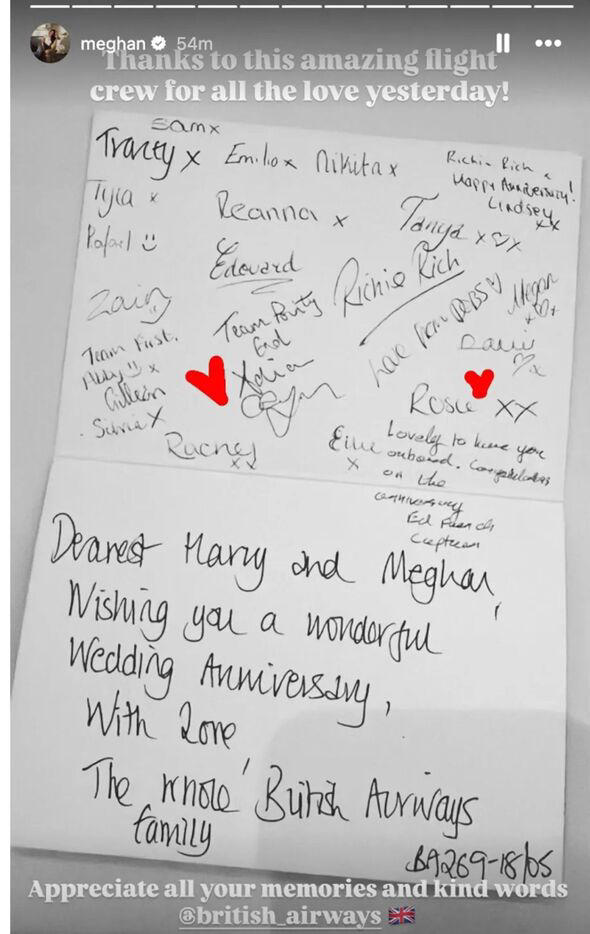 meghan 54m
Thanks to this amazing flight
crew for all the love yesterday!
Samx
Tracey x Emilio x Nikita x
Richie Rich x
Happy Anniversary!
Lindsey xx
Tyla x
Reanna x
Tanya x♡x
Rafael
Edouard
Richie Rich
Zain
Team Purity
End
Love from
Megan
Team First.
Abby x
Gillean
Silvia x
Rosie xx
Rachel
xx
x
Lovely to have you
onboard. Congratulations
on the
anniversary
Ed
Captain
Dearest Harry and Meghan,
Wishing you a wonderful
Wedding Anniversary,
With Love,
The whole British Airways
family
BA269-18/05
Appreciate all your memories and kind words
@british_airways 🇬🇧